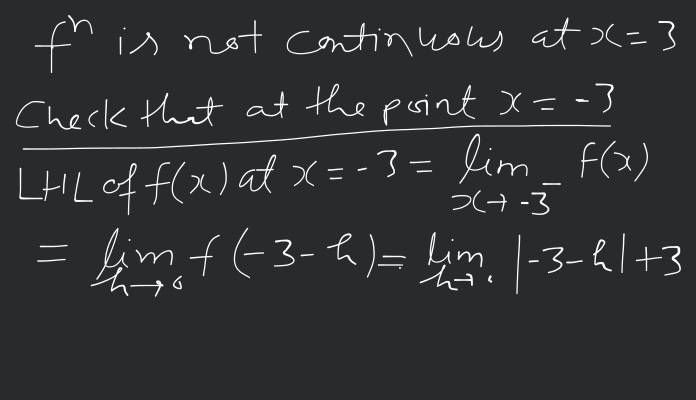 fⁿ is not continuous at x = 3
Check that at the point x = -3
LHL of f(x) at x = -3 = lim x→-3⁻ f(x)
= lim h→0 f(-3-h) = lim h→0 |-3-h|+3